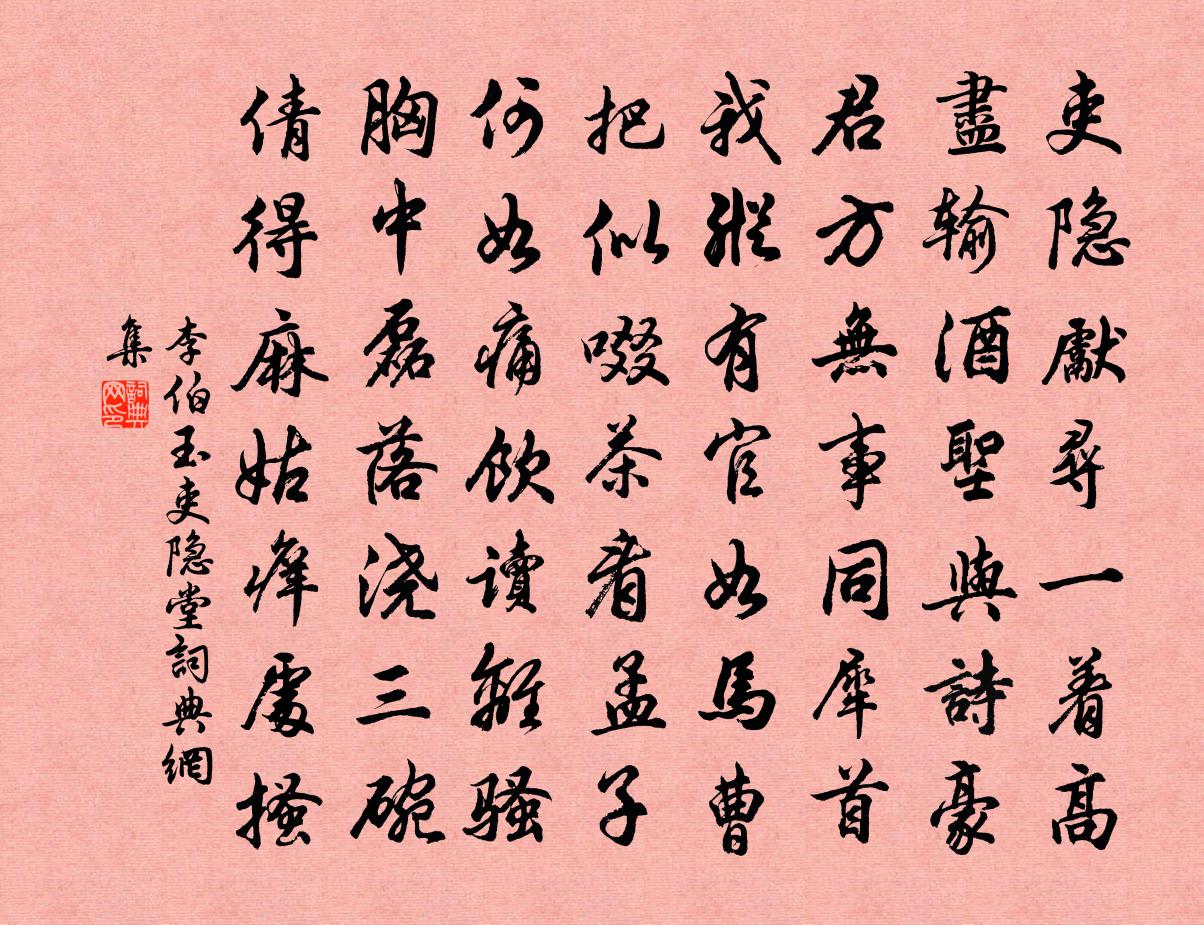 吏隐獻尋一着高
盡输酒聖與詩豪
君方無事同犀首
我縱有官如馬曹
把似啜茶看孟子
何如痛飲讀離騷
胸中磊落浇三碗
倩得麻姑痒處搔
李伯玉吏隐堂詞典網
集
詞典網印